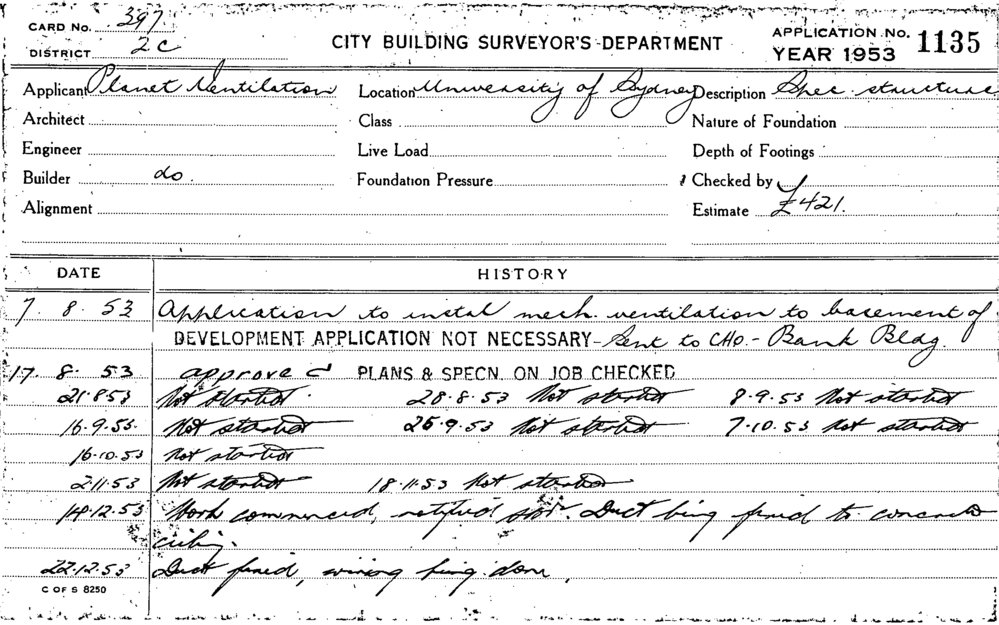 CARD No. 397
DISTRICT 2c
CITY BUILDING SURVEYOR'S DEPARTMENT
APPLICATION No. 1135
YEAR 1953
Applicant Planet Ventilation Location University of Sydney Description Spec. structure
Architect Class Nature of Foundation
Engineer Live Load Depth of Footings
Builder do. Foundation Pressure Checked by
Alignment Estimate £421.
DATE HISTORY
7. 8. 53 Application to instal mech. ventilation to basement of
DEVELOPMENT APPLICATION NOT NECESSARY - Sent to CHO. - Bank Bldg.
17. 8. 53 approved PLANS & SPECN. ON JOB CHECKED
21.8.53 Not started. 28.8.53 Not started 8.9.53 Not started
16.9.53. Not started 25.9.53 Not started 7.10.53 Not started
16.10.53 Not started
2.11.53 Not started 18.11.53 Not started
14.12.53 Work commenced, notified Duct being fixed to concrete
ceiling.
22.12.53 Duct fixed, wiring being done.
C OF S 8250